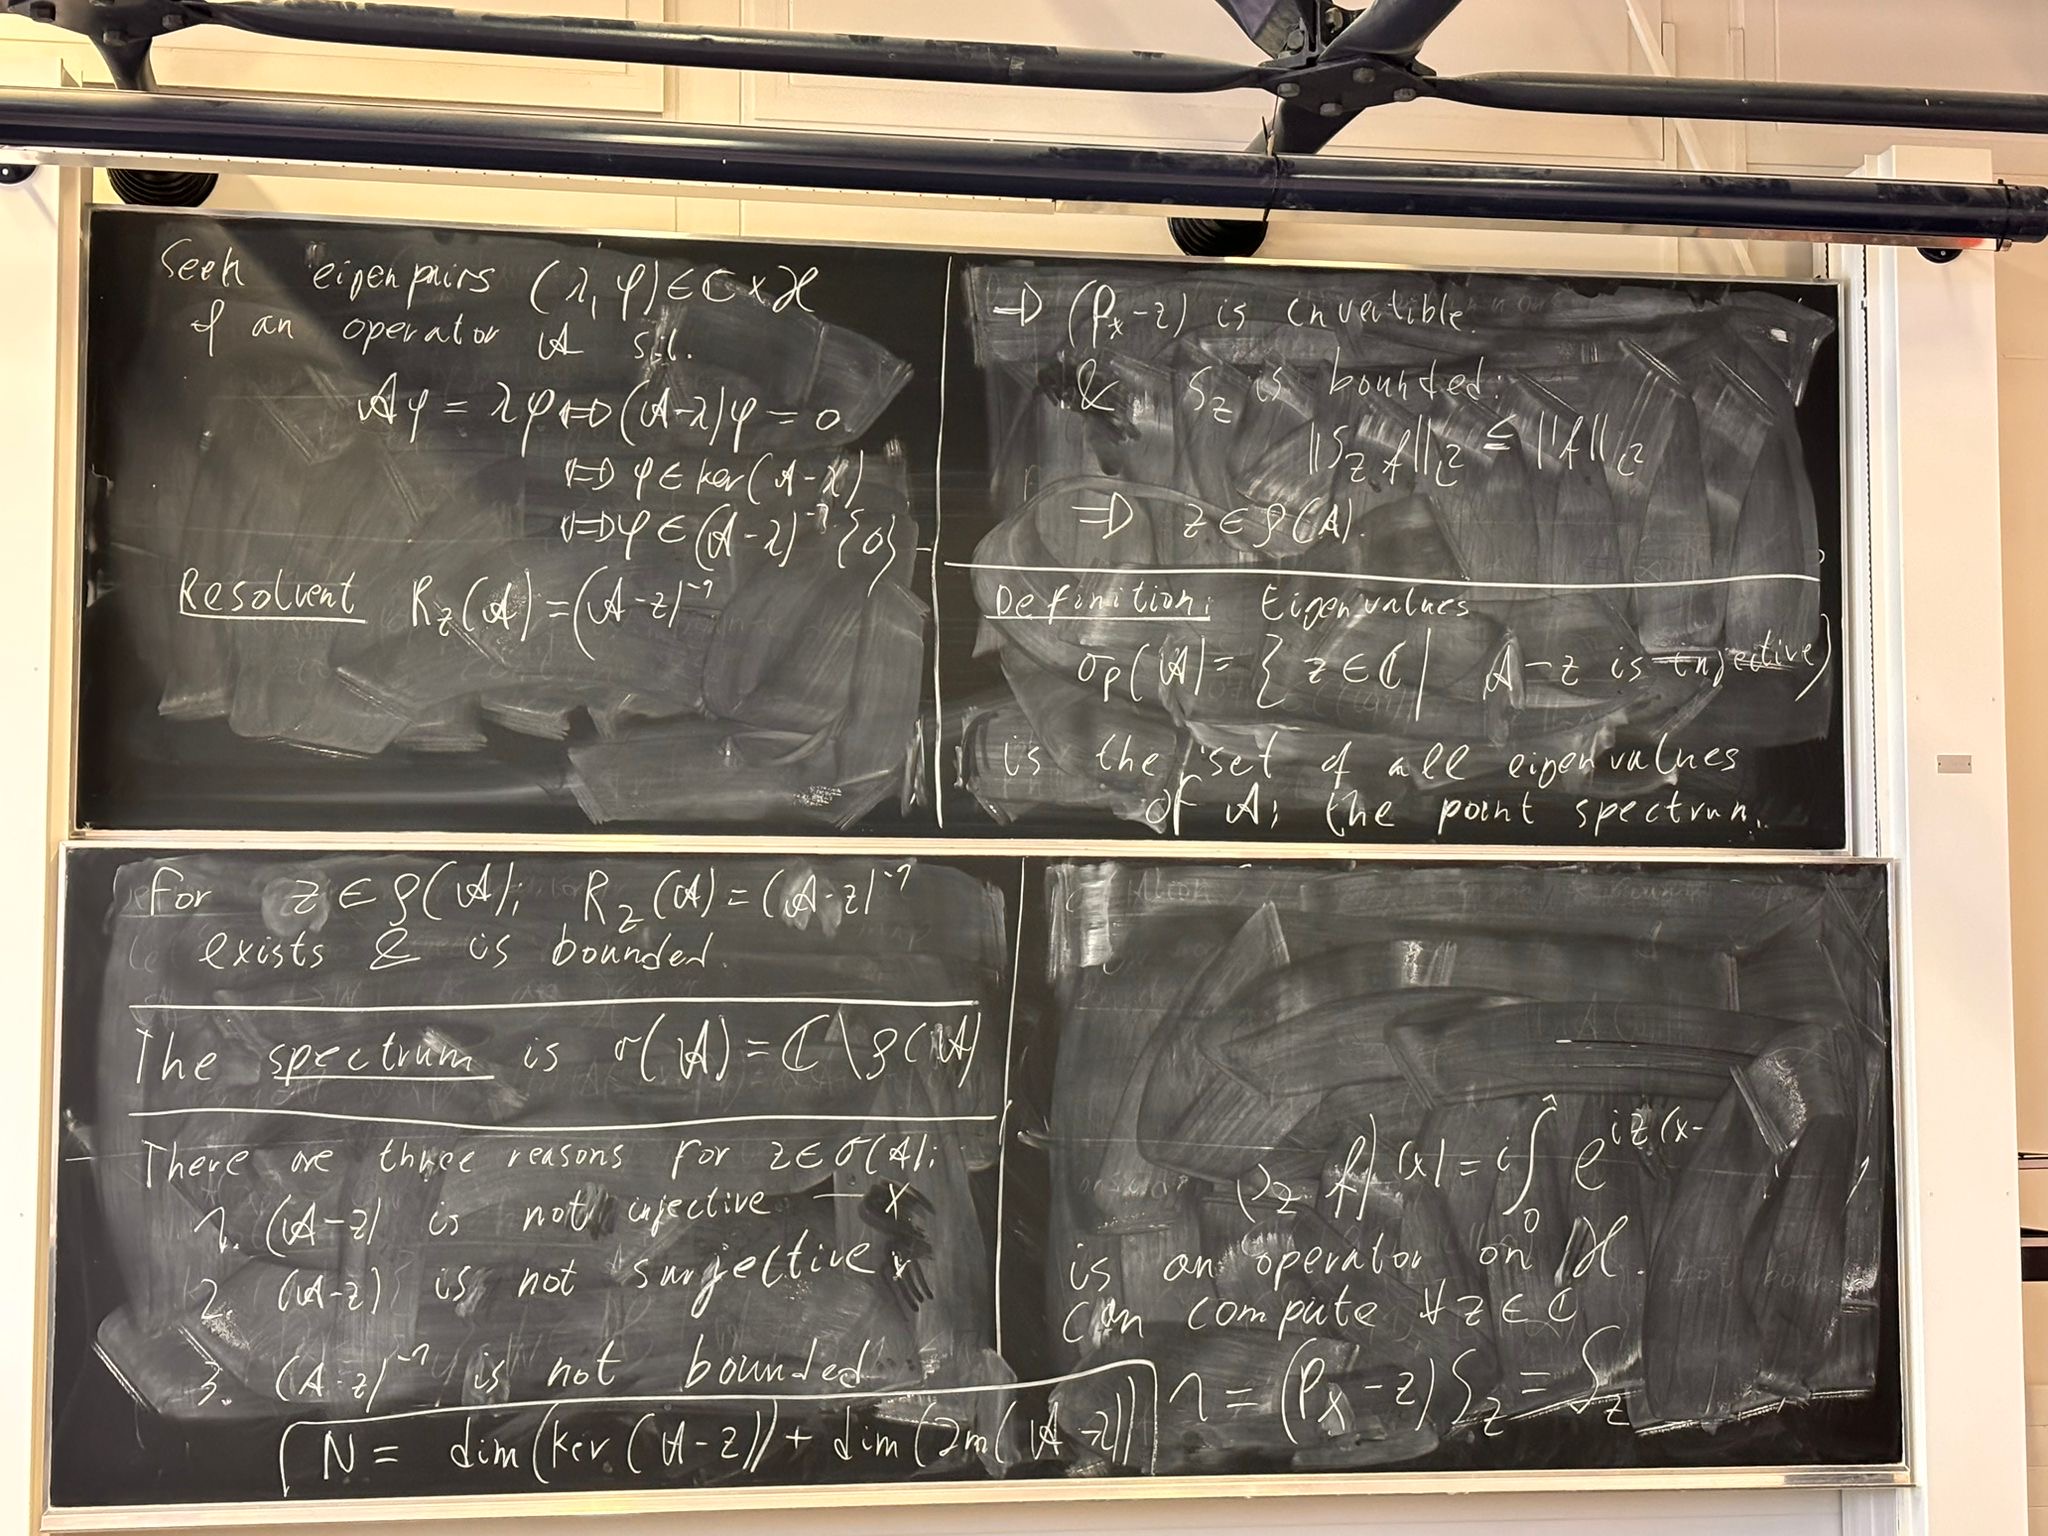 Seek eigenpairs (λ, φ) ∈ ℂ × ℋ
of an operator A s.t.
Aφ = λφ ⟺ (A-λ)φ = 0
⟺ φ ∈ ker(A-λ)
⟺ φ ∈ (A-λ)⁻¹{0}
Resolvent R_z(A) = (A-z)⁻¹
⇒ (P_x - z) is invertible.
& S_z is bounded:
‖S_z f‖_L² ≤ ‖f‖_L²
⇒ z ∈ ρ(A).
Definition: Eigenvalues
σ_p(A) = { z ∈ ℂ | A - z is injective}
is the set of all eigenvalues
of A; the point spectrum.
For z ∈ ρ(A); R_z(A) = (A-z)⁻¹
exists & is bounded.
The spectrum is σ(A) = ℂ \ ρ(A)
There are three reasons for z ∈ σ(A):
1. (A-z) is not injective — x
2. (A-z) is not surjective x
3. (A-z)⁻¹ is not bounded
N = dim(ker(A-z)) + dim(Im(A-z))
f)(x) = i∫₀ e^{iz(x-
is an operator on ℋ.
Can compute ∀ z ∈ ℂ
1 = (P_x - z) S_z = S_z